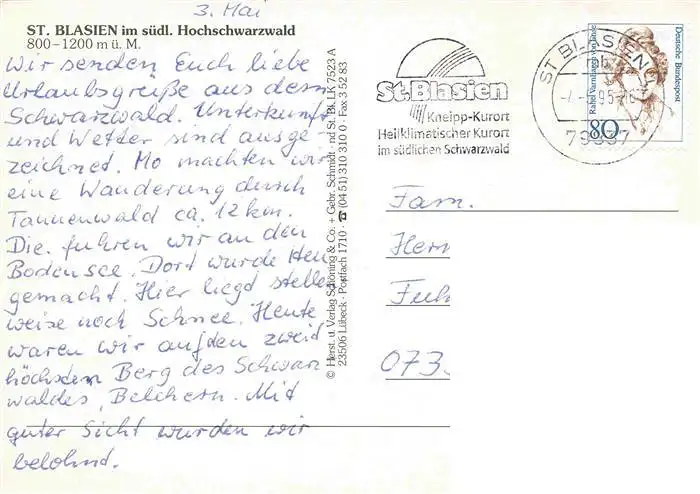 3. Mai
ST. BLASIEN im südl. Hochschwarzwald
800–1200 m ü. M.
Wir senden Euch liebe
Urlaubsgrüße aus dem
Schwarzwald. Unterkunft
und Wetter sind ausge-
zeichnet. Mo machten wir
eine Wanderung durch
Tannenwald ca. 12 km.
Die. fuhren wir an den
Bodensee. Dort wurde
gemacht. Hier liegt stellen
weise noch Schnee. Heute
waren wir auf den zweit
höchsten Berg des Schwarz
waldes, Belchen. Mit
guter Sicht wurden wir
belohnt.
© Herst. u. Verlag Schöning & Co. + Gebr. Schmidt · nd St. Bl. LK 7523 A
23506 Lübeck · Postfach 1710 · ☎ (04 51) 310 310 0 · Fax 3 52 83
St. Blasien
Kneipp-Kurort
Heilklimatischer Kurort
im südlichen Schwarzwald
ST BLASIEN 1
mb
95
79837
Deutsche Bundespost
Rahel Varnhagen von Ense
80
Fam.
Herm
Fuch
073